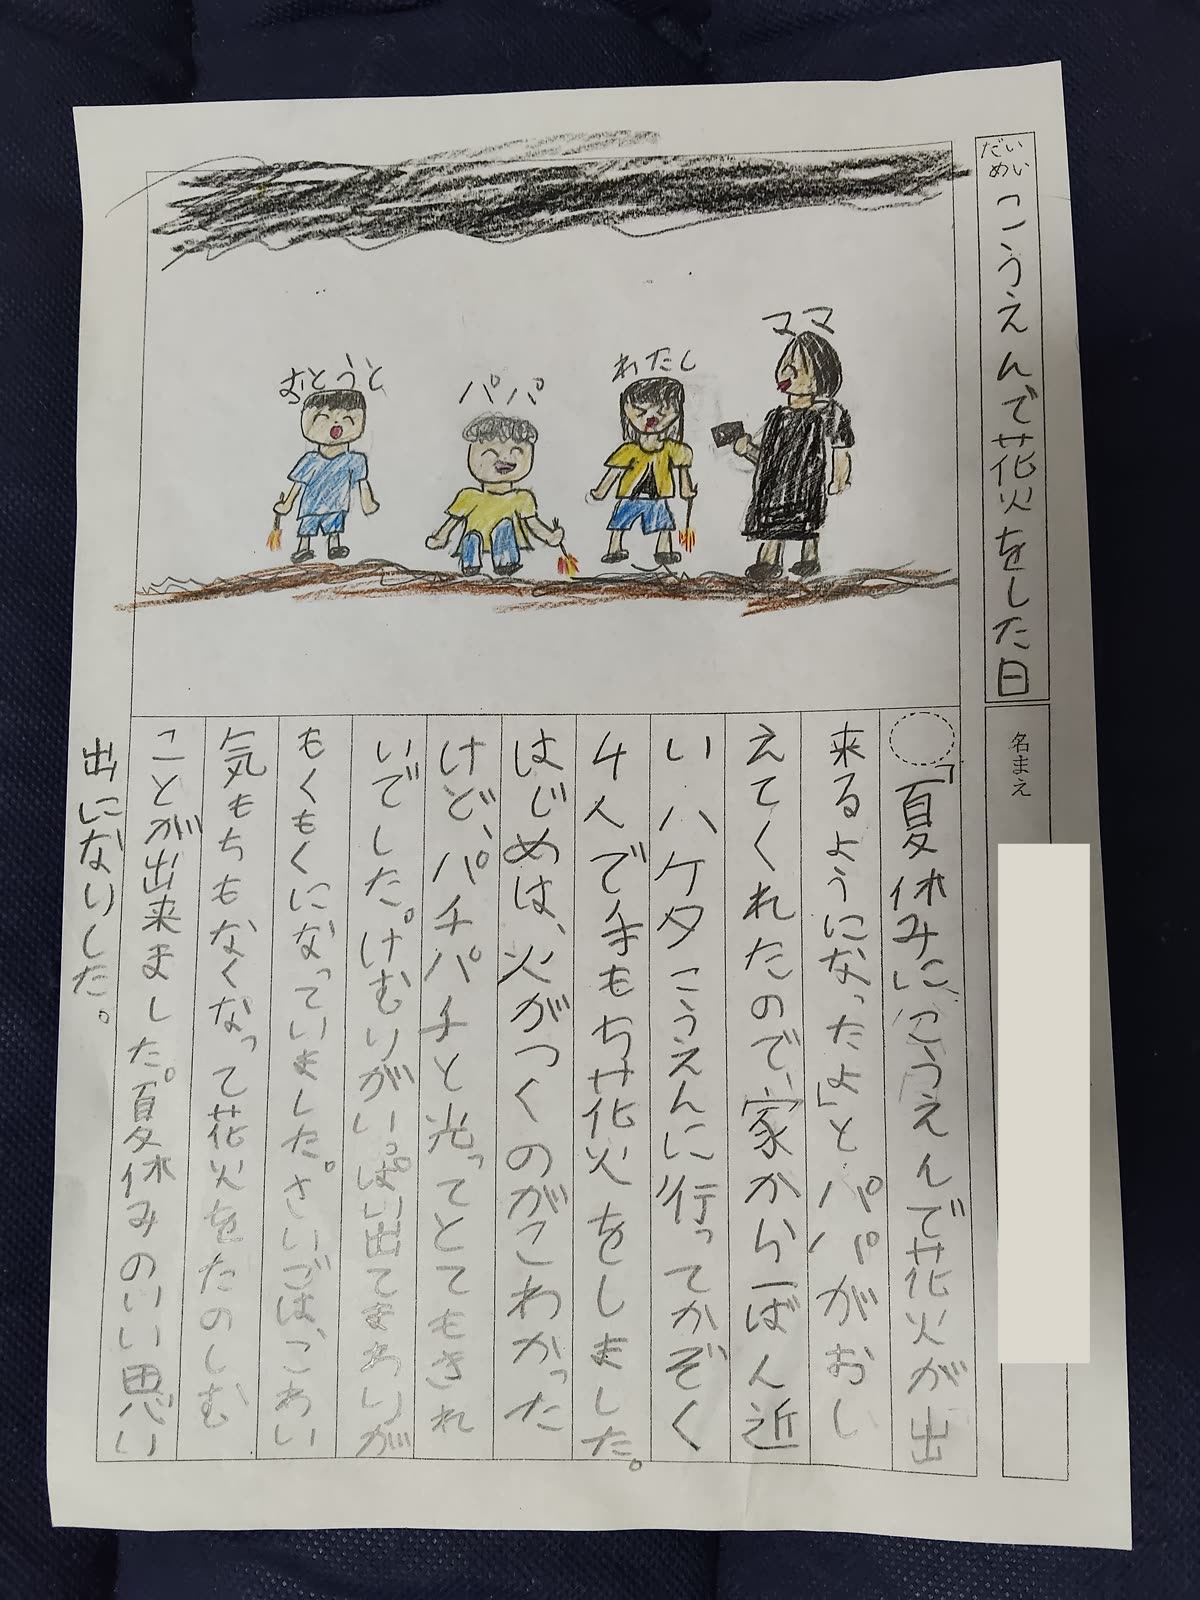 だいめい
こうえんで花火をした日
名まえ
おとうと
パパ
わたし
ママ
「夏休みにこうえんで花火が出
来るようになったよ」とパパがおし
えてくれたので、家から一ばん近
いハケタこうえんに行ってかぞく
4人で手もち花火をしました。
はじめは、火がつくのがこわかった
けど、パチパチと光ってとてもきれ
いでした。けむりがいっぱい出てまわりが
もくもくになっていました。さいごは、こわい
気もちもなくなって花火をたのしむ
ことが出来ました。夏休みのいい思い
出になりした。